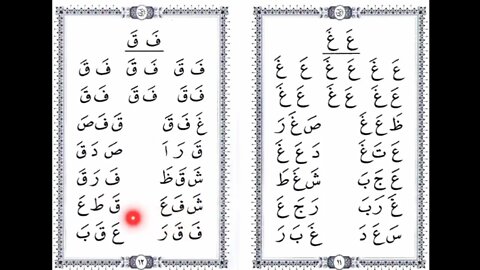 عَ غَ
عَ غَ عَ غَ عَ غَ
عَ غَ عَ غَ عَ غَ
ظَ عَ غَ صَ غَ رَ
عَ تَ غَ دَ عَ غَ
عَ جَ بَ شَ غَ طَ
غَ رَ بَ رَ جَ عَ
سَ عَ دَ غَ بَ رَ
فَ قَ
فَ قَ فَ قَ فَ قَ
فَ قَ فَ قَ فَ قَ
غَ فَ قَ قَ فَ صَ
قَ رَ اَ صَ دَ قَ
شَ قَ ظَ فَ رَ قَ
شَ فَ عَ قَ طَ عَ
فَ قَ رَ عَ قَ بَ